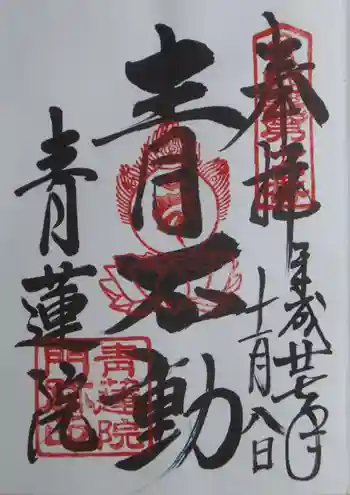 奉拝
平成廿七年
十一月八日
青不動
青蓮院
青蓮院
門跡印